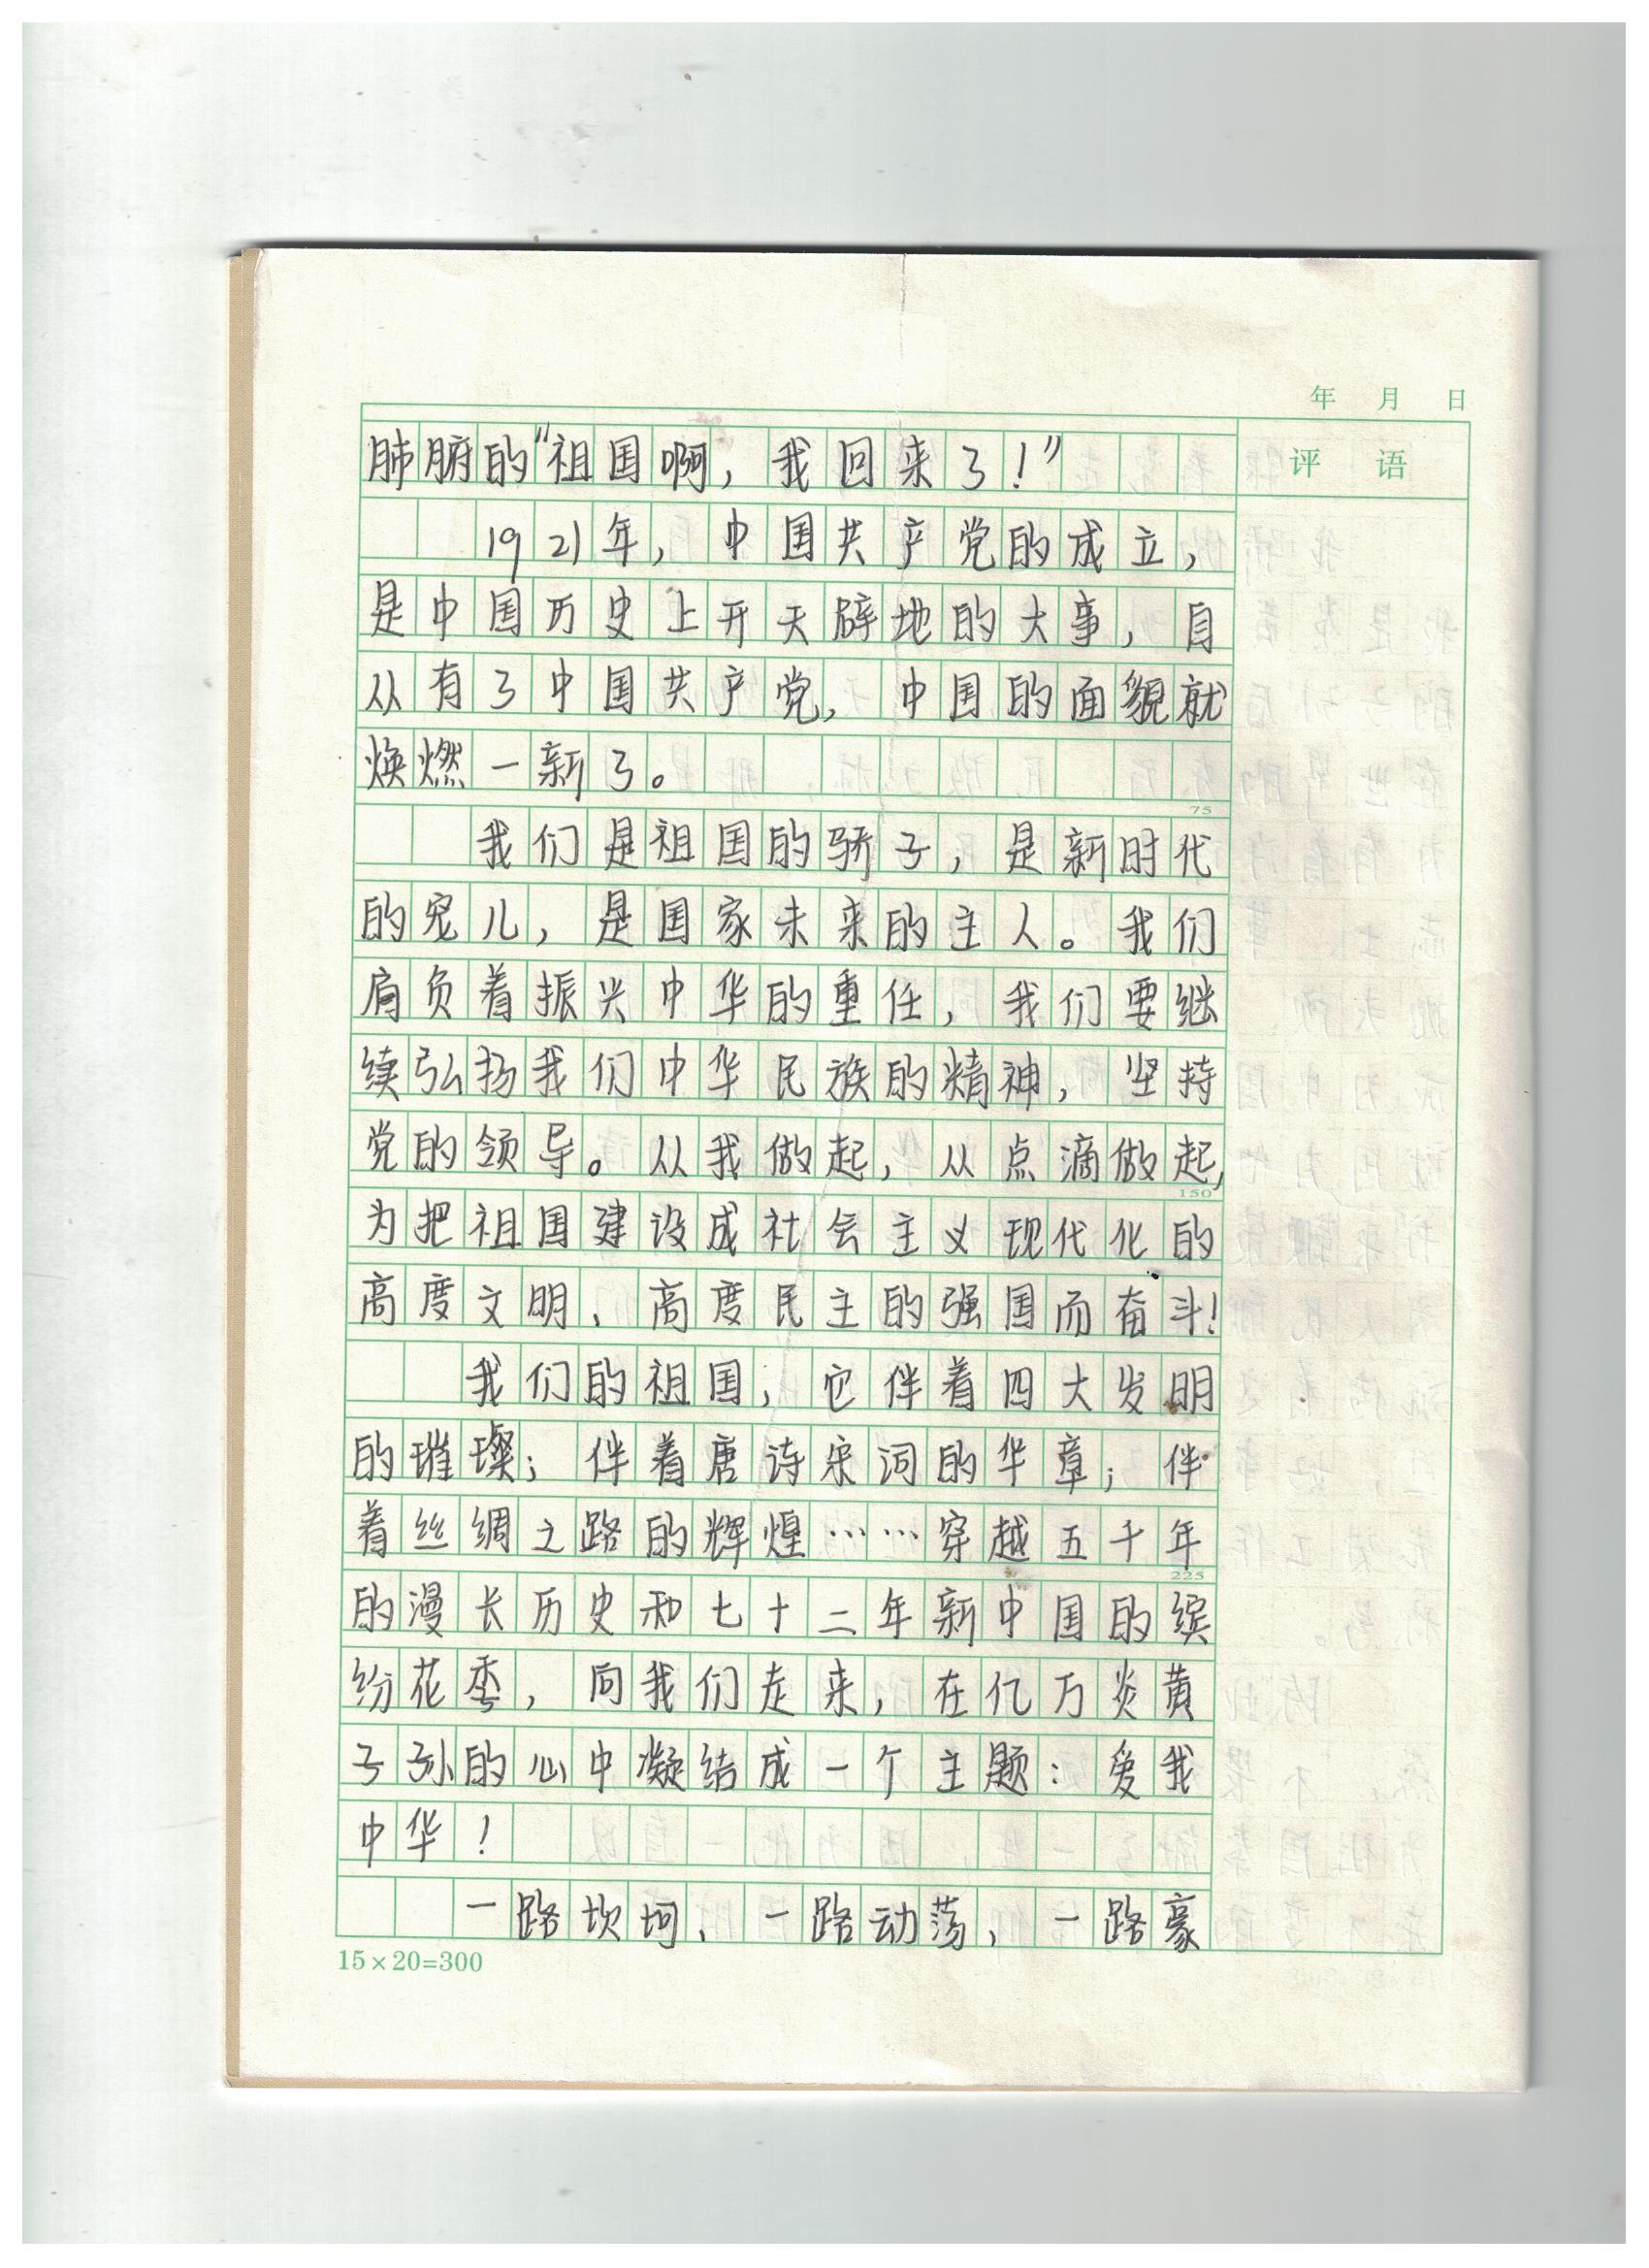 年 月 日
评 语
肺腑的"祖国啊，我回来了！"
1921年，中国共产党的成立，
是中国历史上开天辟地的大事，自
从有了中国共产党，中国的面貌就
焕燃一新了。
75
我们是祖国的骄子，是新时代
的宠儿，是国家未来的主人。我们
肩负着振兴中华的重任，我们要继
续弘扬我们中华民族的精神，坚持
党的领导。从我做起，从点滴做起，
150
为把祖国建设成社会主义现代化的
高度文明、高度民主的强国而奋斗！
我们的祖国，它伴着四大发明
的璀璨；伴着唐诗宋词的华章；伴
着丝绸之路的辉煌……穿越五千年
225
的漫长历史和七十二年新中国的缤
纷花季，向我们走来，在亿万炎黄
子孙的心中凝结成一个主题：爱我
中华！
一路坎坷、一路动荡，一路豪
15×20=300